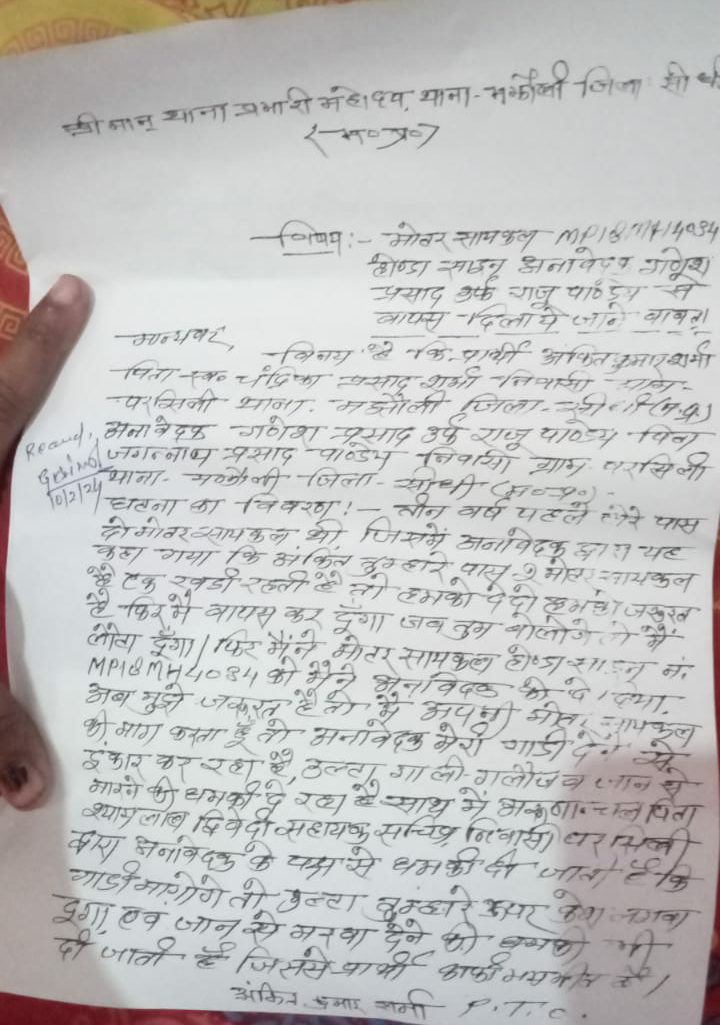 श्री मान् थाना प्रभारी महोदय, थाना - मझौली जिला सीधी
(म०प्र०)
विषय:- मोटर सायकल MP18MH4034
होण्डा साइन अनावेदक गणेश
प्रसाद उर्फ राजू पाण्डेय से
वापस दिलाये जाने बावत।
मान्यवर,
विनय है कि प्रार्थी अंकित कुमार शर्मा
पिता स्व० चंद्रिका प्रसाद शर्मा निवासी ग्राम-
परसिली थाना. मझौली जिला-सीधी (म.प्र.)
अनावेदक गणेश प्रसाद उर्फ राजू पाण्डेय पिता
जगन्नाथ प्रसाद पाण्डेय निवासी ग्राम परसिली
थाना- मझौली जिला- सीधी (म०प्र०).
Recevd,
10/2/24
घटना का विवरण!- तीन वर्ष पहले मेरे पास
दो मोटर सायकल थी जिसमें अनावेदक द्वारा यह
कहा गया कि अंकित तुम्हारे पास 2 मोटर सायकल
है एक खडी रहती है तो हमको दे दो हमको जरूरत
है फिर मै वापस कर दूँगा जब तुम बोलोगे तो मैं
लौटा दूँगा। फिर मैंने मोटर सायकल होण्डा साइन नं.
MP18MH4034 को मैने अनावेदक को दे दिया.
अब मुझे जरूरत है तो मै अपनी मोटर सायकल
की माग करता हूँ तो अनावेदक मेरी गाडी देने से
इंकार कर रहा है, उल्टा गाली-गलौज व जान से
मारने की धमकी दे रहा है साथ में पिता
श्यामलाल द्विवेदी सहायक सचिव निवासी परसिली
द्वारा अनावेदक के पक्ष से धमकी दी जाती है कि
गाडी मागोगे तो उल्टा तुम्हारे ऊपर केश लगवा
दूंगा, एव जान से मरवा देने की धमकी भी
दी जाती है जिससे प्रार्थी काफी भयभीत है।
अंकित कुमार शर्मा P.T.O.